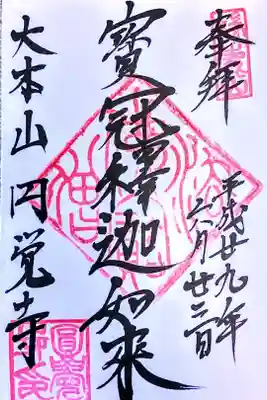 奉拝
平成廿九年
六月廿二日
寳冠釋迦如来
大本山円覚寺